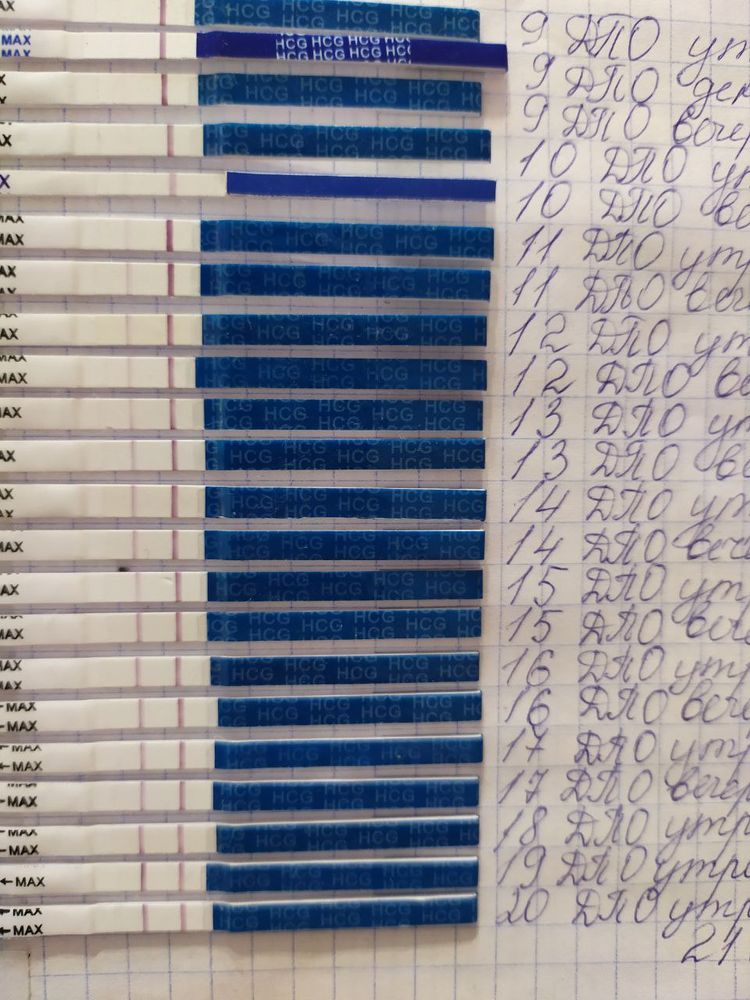 9 ДПО ут
MAX MAX HCG HCG HCG HCG
9 ДПО ден
HCG HCG HCG HCG
9 ДПО вечер
HCG HCG HCG HCG
10 ДПО ут
10 ДПО ве
MAX HCG HCG HCG HCG
11 ДПО утр
HCG HCG HCG HCG
11 ДПО веч
HCG HCG HCG HCG
12 ДПО ут
MAX HCG HCG HCG HCG
12 ДПО ве
MAX HCG HCG HCG HCG
13 ДПО ут
HCG HCG HCG HCG
13 ДПО ве
HCG HCG HCG HCG
14 ДПО ут
MAX HCG HCG HCG HCG
14 ДПО веч
HCG HCG HCG HCG
15 ДПО ут
MAX HCG HCG HCG HCG
15 ДПО веч
MAX HCG HCG HCG HCG
16 ДПО утр
←MAX HCG HCG HCG HCG
16 ДПО вече
←MAX HCG HCG HCG HCG
17 ДПО утр
←MAX HCG HCG HCG HCG
17 ДПО вечер
←MAX HCG HCG HCG HCG
18 ДПО утр
←MAX HCG HCG HCG HCG
19 ДПО утро
←MAX HCG HCG HCG HCG
20 ДПО утр
21